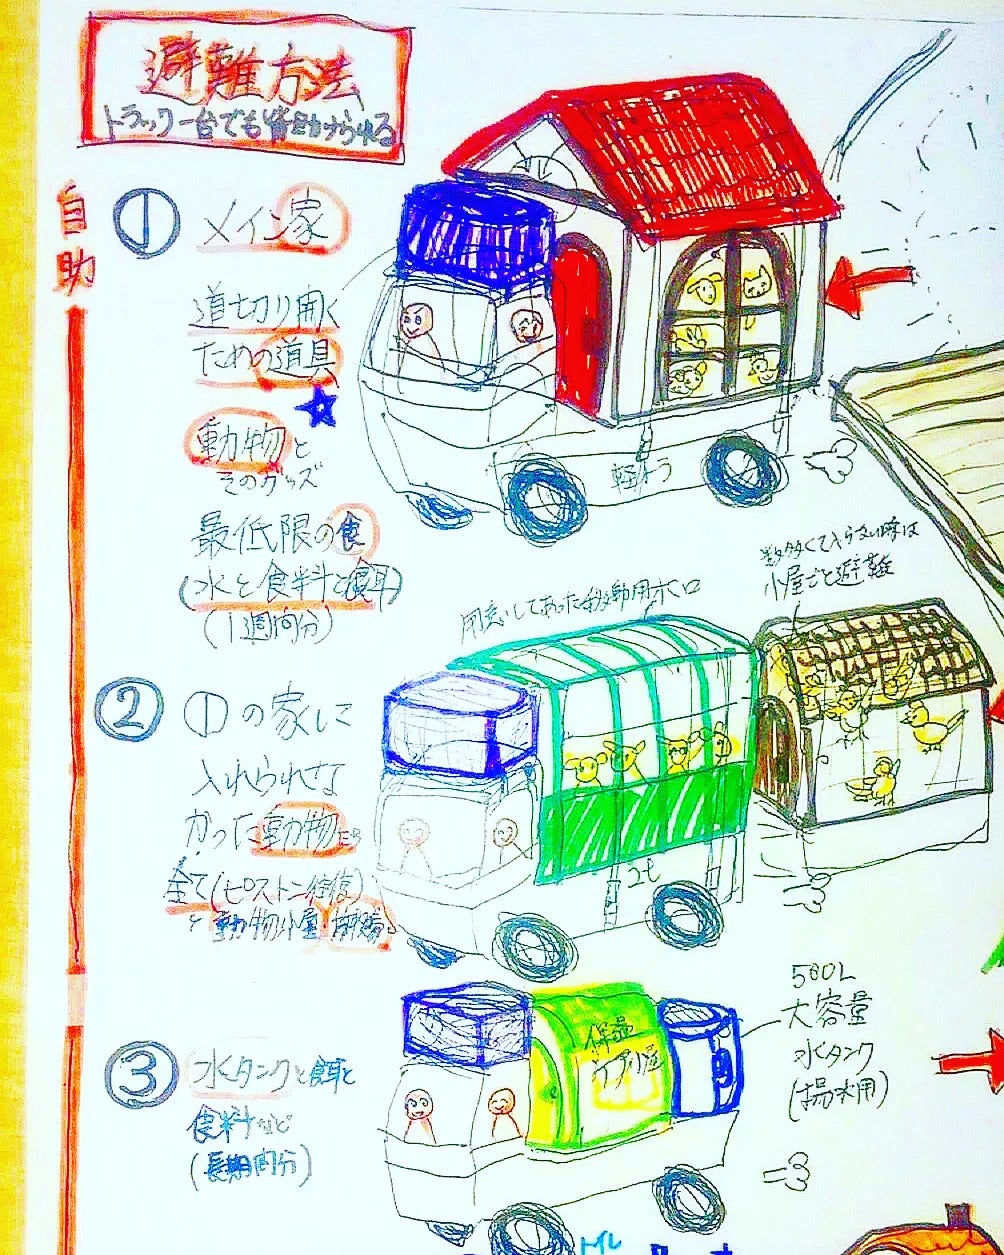 避難方法
トラック一台でも皆助けられる
自助
① メイン家
道切り開く
ための道具
動物と
そのグッズ
最低限の食
(水と食料と餌)
(1週間分)
軽トラ
用意してあった移動用ホロ
数多くて入らない時は
小屋ごと避難
② ①の家に
入れられな
かった動物たち
全て(ピストン往復)
と動物小屋
③ 水タンクと餌と
食料など
(長期間分)
保温
500L
大容量
水タンク
トイレ